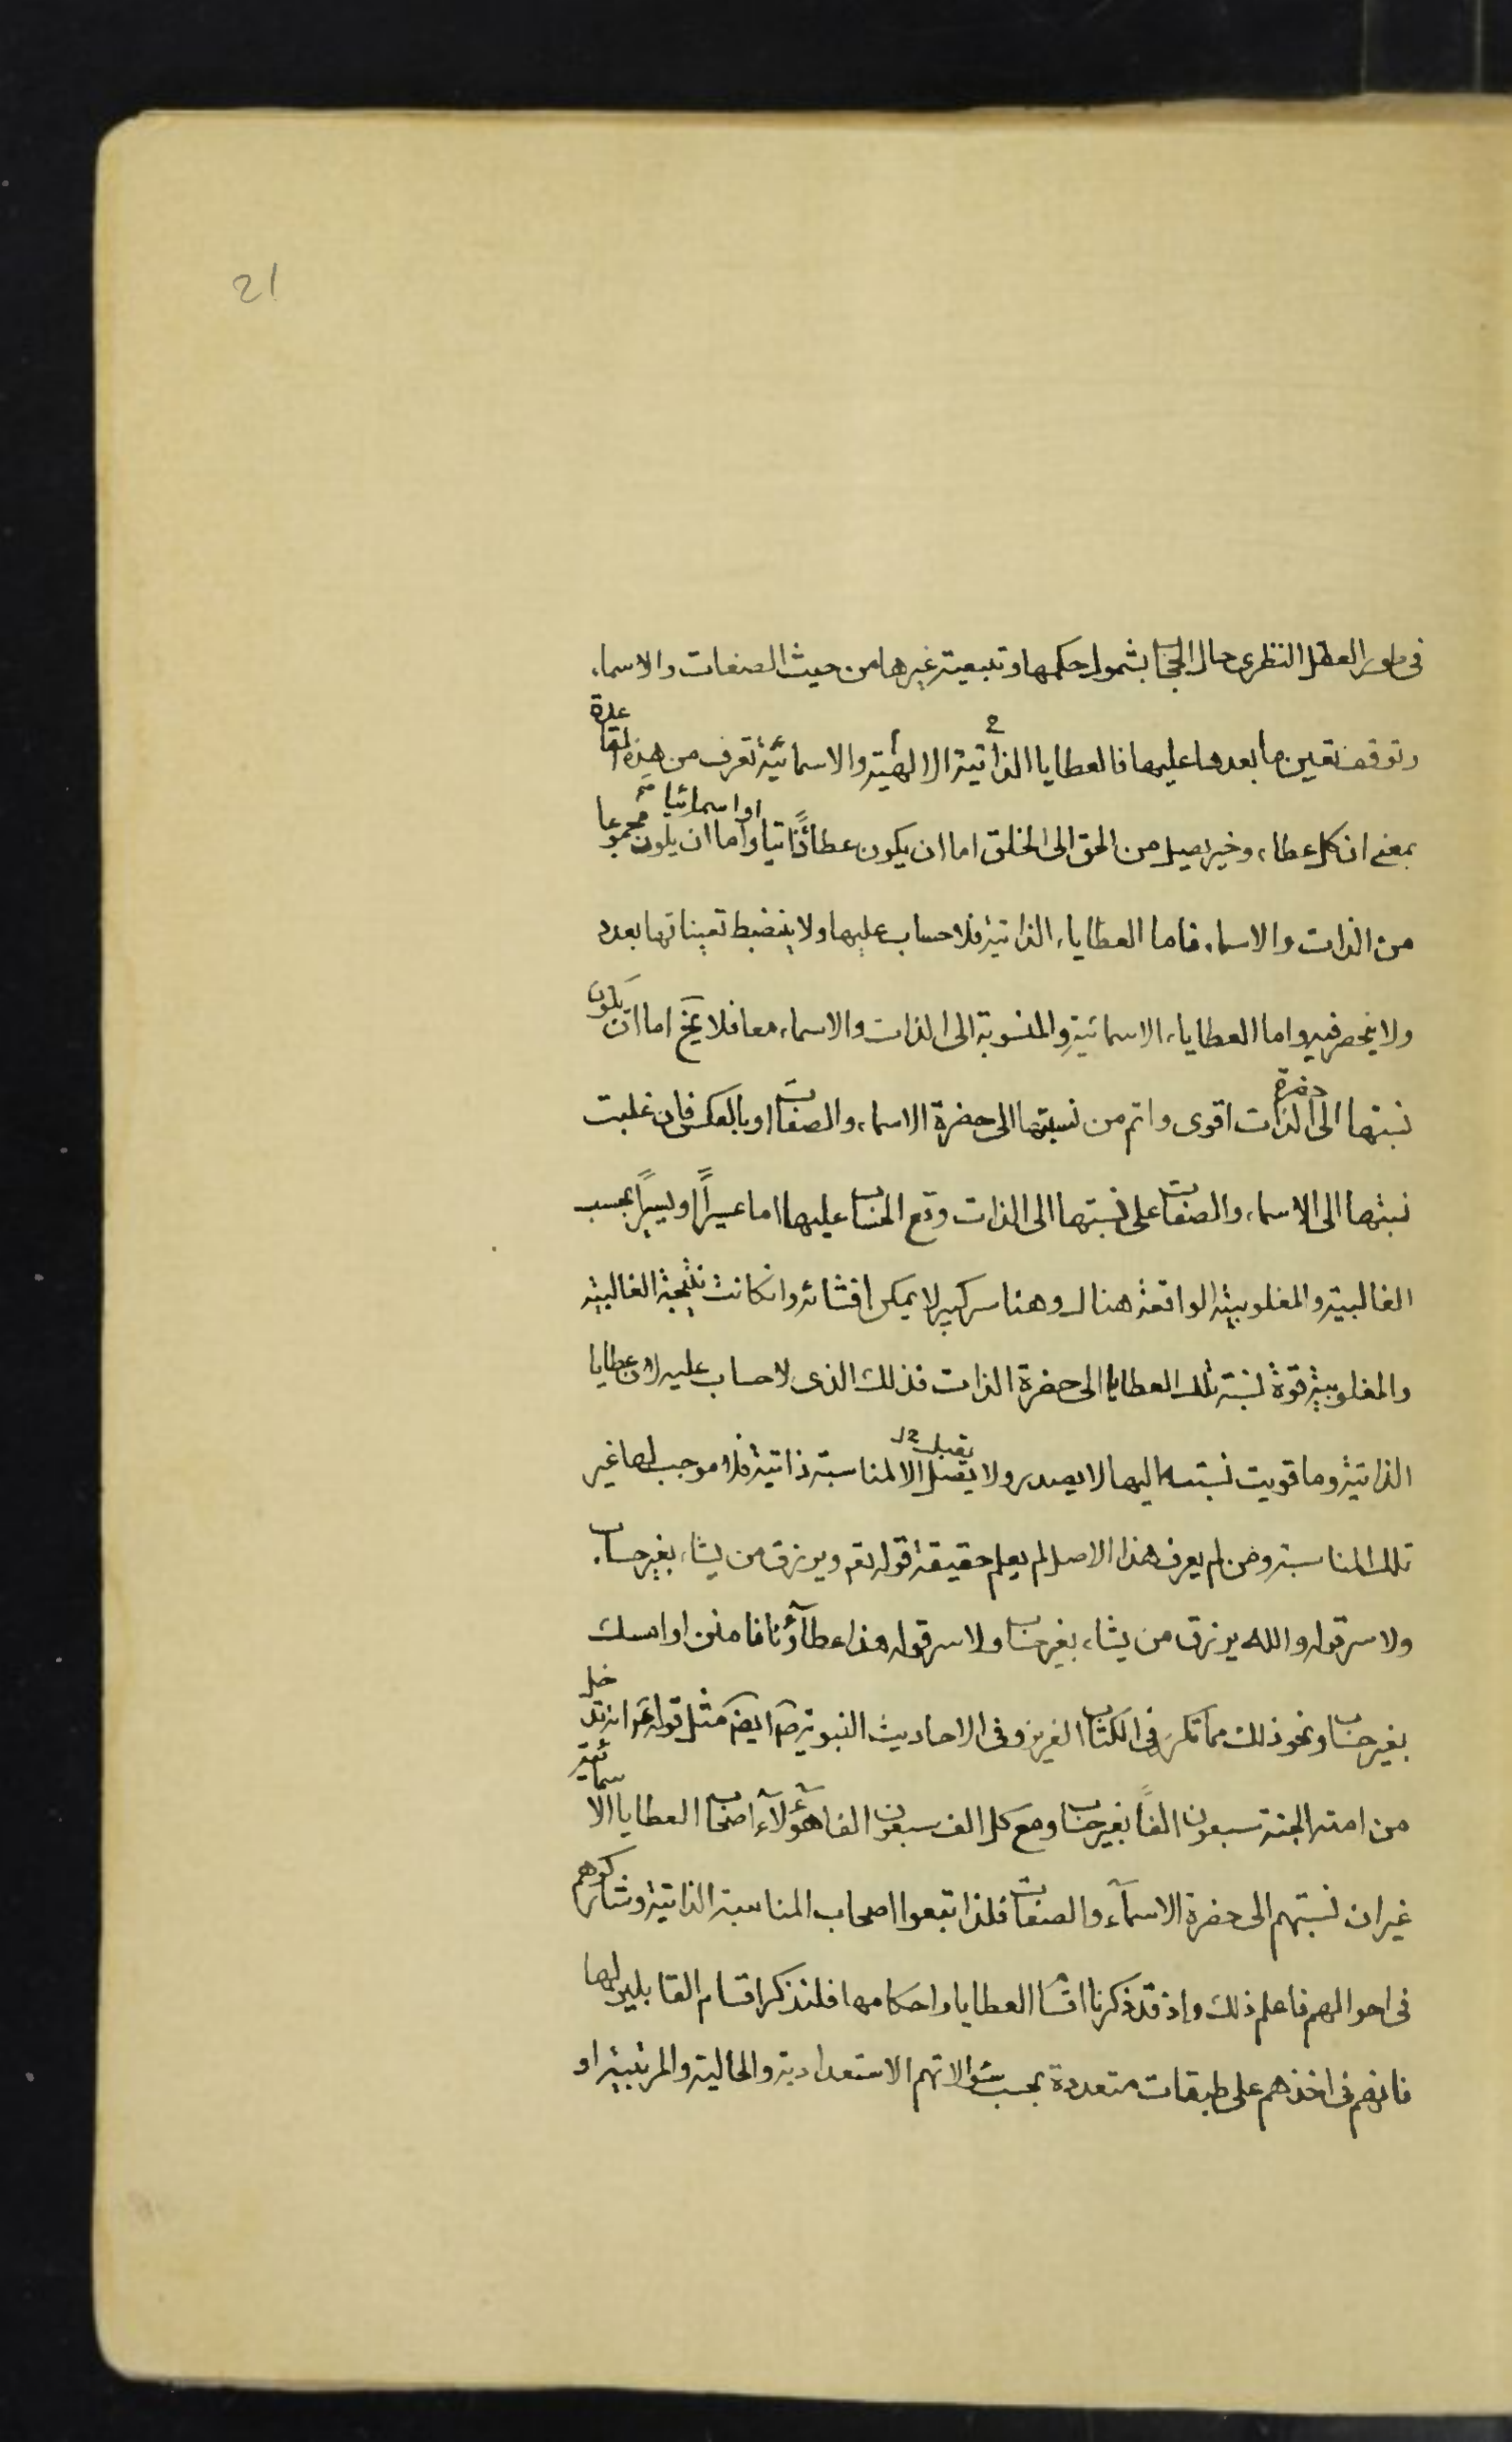 21
في طور العقل النظري حال الحجاب بشمول حكمها وتبعية غيرها من حيث الصفات والاسماء
وتوقف تعين ما بعدها عليها فالعطايا الذاتية الالهية والاسمائية تعرف من هذه القاعدة
بمعنى ان كل عطاء وخير يصل من الحق الى الخلق اما ان يكون عطاءً ذاتيا او اسمائيا واما ان يكون مجموعا
من الذات والاسماء فاما العطاياء الذاتية فلا حساب عليها ولا ينضبط تعيناتها بعدد
ولا ينحصر فيه واما العطاياء الاسمائية والمنسوبة الى الذات والاسماء معا فلا يخ اما ان يكون
نسبتها الى حضرة الذات اقوى واتم من نسبتها الى حضرة الاسماء والصفات او بالعكس فان غلبت
نسبتها الى الاسماء والصفات على نسبتها الى الذات وقع الحساب عليها اما عسيراً او يسيراً بحسب
الغالبية والمغلوبية الواقعة هناك وهنا سر كبير لا يمكن افشائه وان كانت نتيجة الغالبية
والمغلوبية قوة نسبة تلك العطايا الى حضرة الذات فذلك الذى لا حساب عليه لان عطايا
الذاتية وما قويت نسبته اليها لا يصدر ولا يقبل الا لمناسبة ذاتية فلا موجب لها غير
تلك المناسبة ومن لم يعرف هذا الاصل لم يعلم حقيقة قوله تعم ويرزق من يشاء بغير حساب
ولا سر قوله والله يرزق من يشاء بغير حساب ولا سر قوله هذا عطآؤنا فامنن او امسك
بغير حساب ونحو ذلك مما تكرر في الكتاب العزيز وفى الاحاديث النبوية ايضم مثل قوله انه يدخل
من امته الجنة سبعون الفاً بغير حساب ومع كل الف سبعون الفا هؤلآء اصحاب العطايا الاسمائية
غير ان نسبتهم الى حضرة الاسمآء والصفات فلذا تبعوا اصحاب المناسبة الذاتية وشاركوهم
في احوالهم فاعلم ذلك واذ قد ذكرنا اقسام العطايا واحكامها فلنذكر اقسام القابلين لها
فانهم في اخذهم على طبقات متعددة بحسب سؤالاتهم الاستعدادية والحالية والمرتبية او